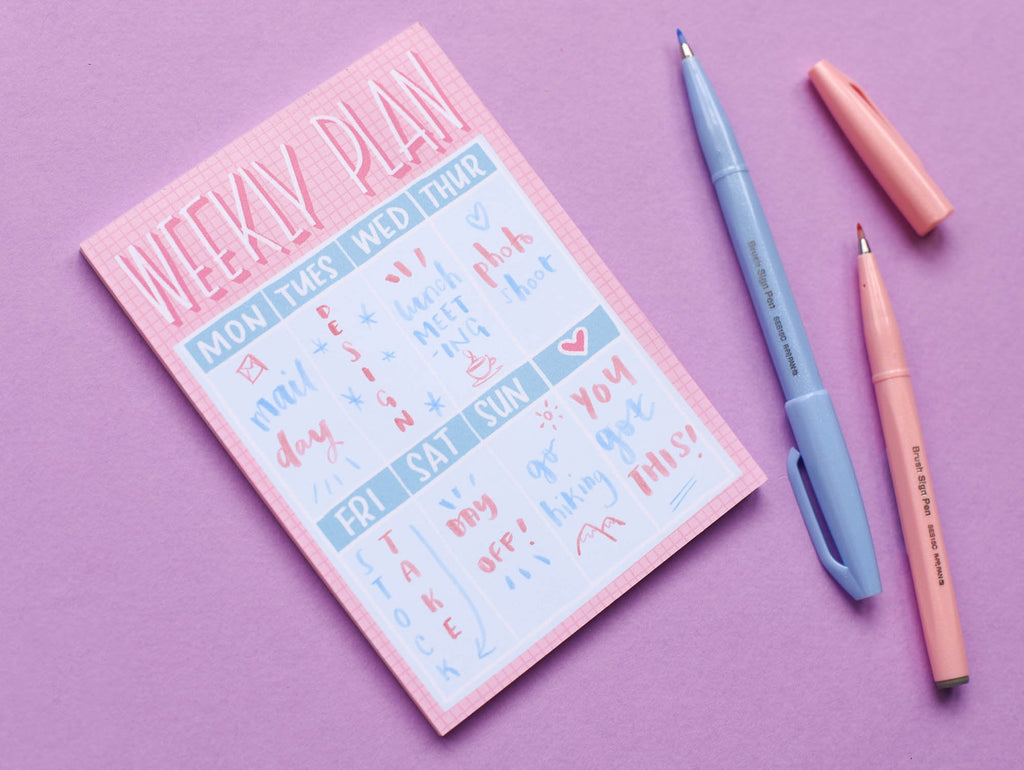 WEEKLY PLAN
MON TUES WED THUR
mail
day
DESIGN
lunch
MEET
-ING
photo
shoot
FRI SAT SUN
STOCK
TAKE
DAY
OFF!
go
hiking
YOU
got
THIS!
Brush Sign Pen SES15C JAPAN
Brush Sign Pen SES15C JAPAN